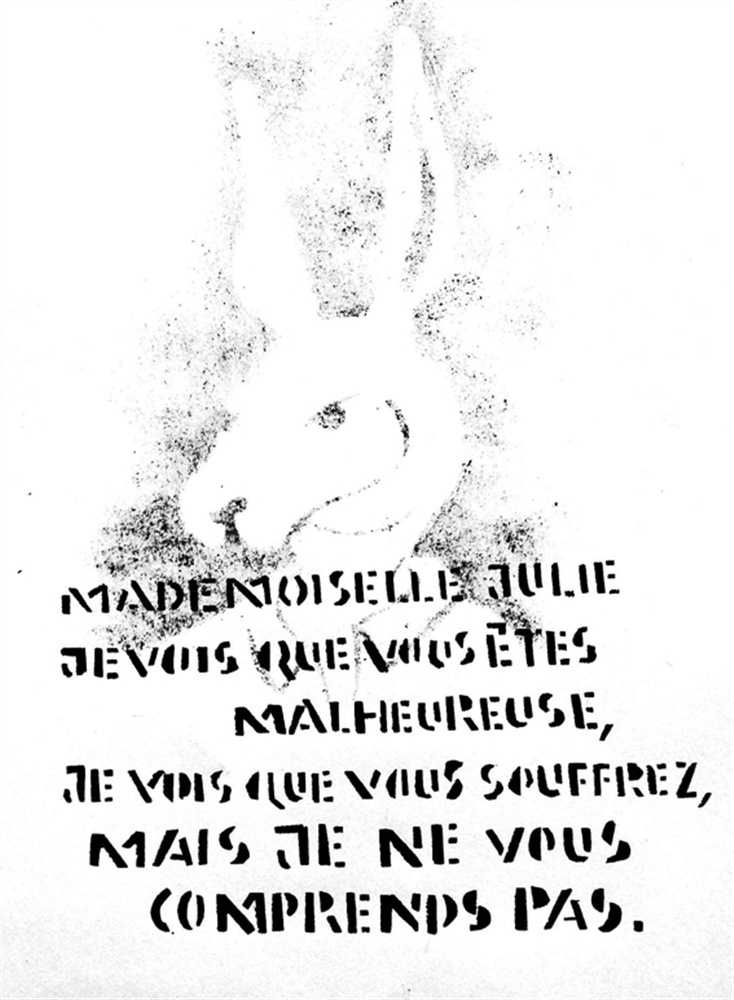 MADEMOISELLE JULIE
JE VOIS QUE VOUS ÊTES
MALHEUREUSE,
JE VOIS QUE VOUS SOUFFREZ,
MAIS JE NE VOUS
COMPRENDS PAS.